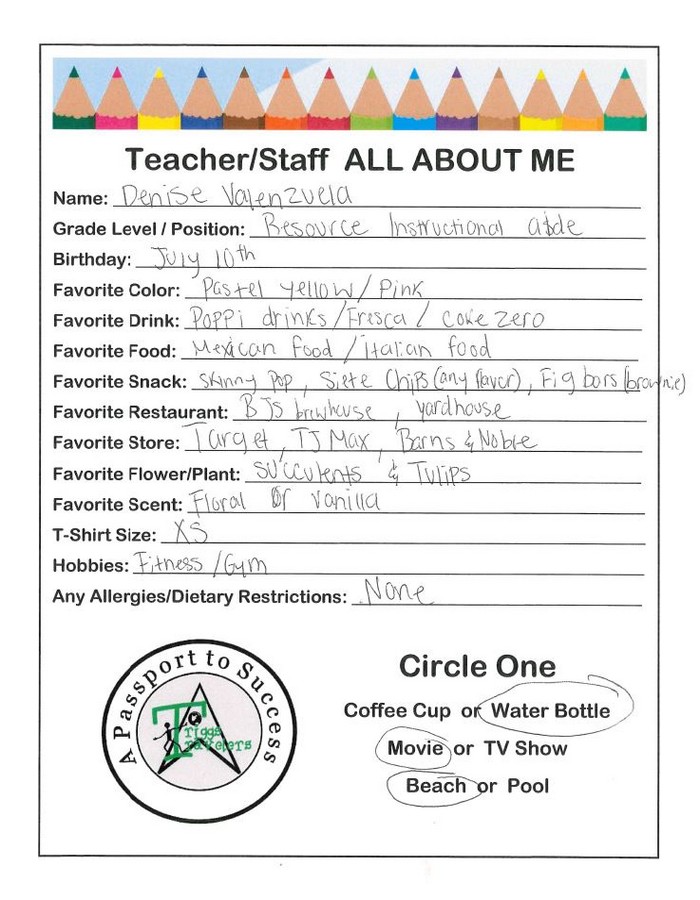 Teacher/Staff ALL ABOUT ME
Name: Denise Valenzuela
Grade Level / Position: Resource Instructional aide
Birthday: July 10th
Favorite Color: Pastel yellow / Pink
Favorite Drink: Poppi drinks / Fresca / coke zero
Favorite Food: Mexican food / italian food
Favorite Snack: Skinny Pop, Siete Chips (any flavor), Fig bars (brownie)
Favorite Restaurant: BJs brewhouse, yardhouse
Favorite Store: Target, TJ Max, Barns & Noble
Favorite Flower/Plant: succulents & Tulips
Favorite Scent: Floral Or vanilla
T-Shirt Size: XS
Hobbies: Fitness / Gym
Any Allergies/Dietary Restrictions: None
A Passport to Success
Triggs
Travelers
Circle One
Coffee Cup or Water Bottle
Movie or TV Show
Beach or Pool